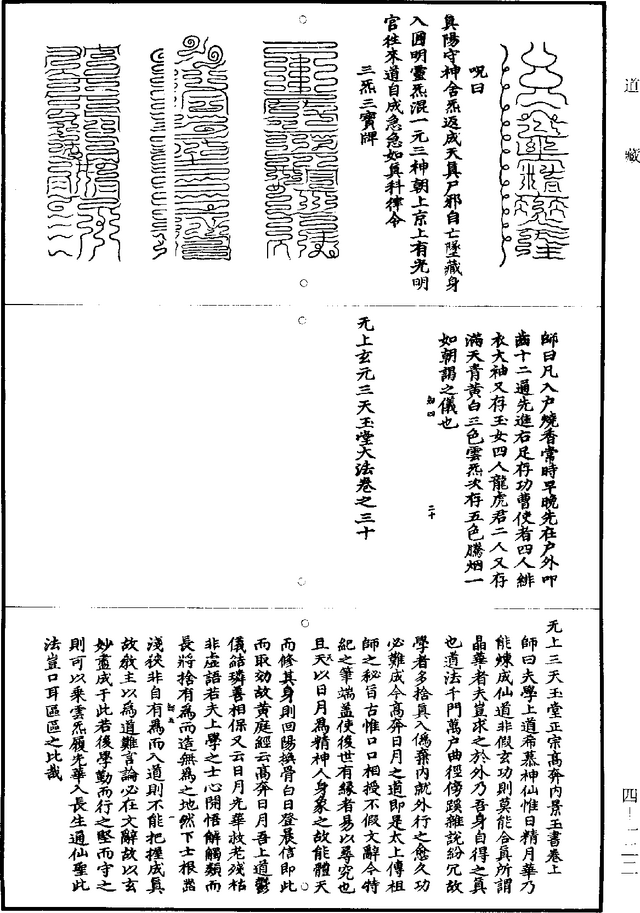 道藏
呪曰
真陽守神含炁返成天真尸邪自亡墜藏身
入圓明靈炁混一元三神朝上京上有光明
官往來道自成急急如真科律令
三炁三寶牌
師曰凡入戶燒香常時早晚先在戶外叩
齒十二通先進右足存功曹使者四人緋
衣大袖又存玉女四人龍虎君二人又存
滿天青黃白三色雲炁次存五色騰烟一
如朝謁之儀也
二十
无上玄元三天玉堂大法卷之三十
无上三天玉堂正宗高奔內景玉書卷上
師曰夫學上道希慕神仙惟日精月華乃
能煉成仙道非假玄功則莫能合真所謂
晶華者夫豈求之於外乃吾身自得之真
也道法千門萬戶曲徑傍蹊雜說紛冗故
學者多捨真入偽棄內就外行之愈久功
必難成今高奔日月之道即是太上傳祖
師之秘旨古惟口口相授不假文辭今特
紀之筆端蓋使後世有緣者易以尋究也
且天以日月為精神人身象之故能體天
而修其身則回陽換骨白日登晨信即此
而取効故黃庭經云高奔日月吾上道鬱
儀結璘善相保又云日月光華救老殘枯
非虛語若夫上學之士心開悟解觸類而
長將捨有為而造無為之地然下士根器
淺狹非自有為而入道則不能把握成真
故教主以為道難言論必在文辭故以玄
妙盡成于此若後學勤而行之堅而守之
則可以乘雲炁履光華入長生通仙聖此
法豈口耳區區之比哉
四–一二二